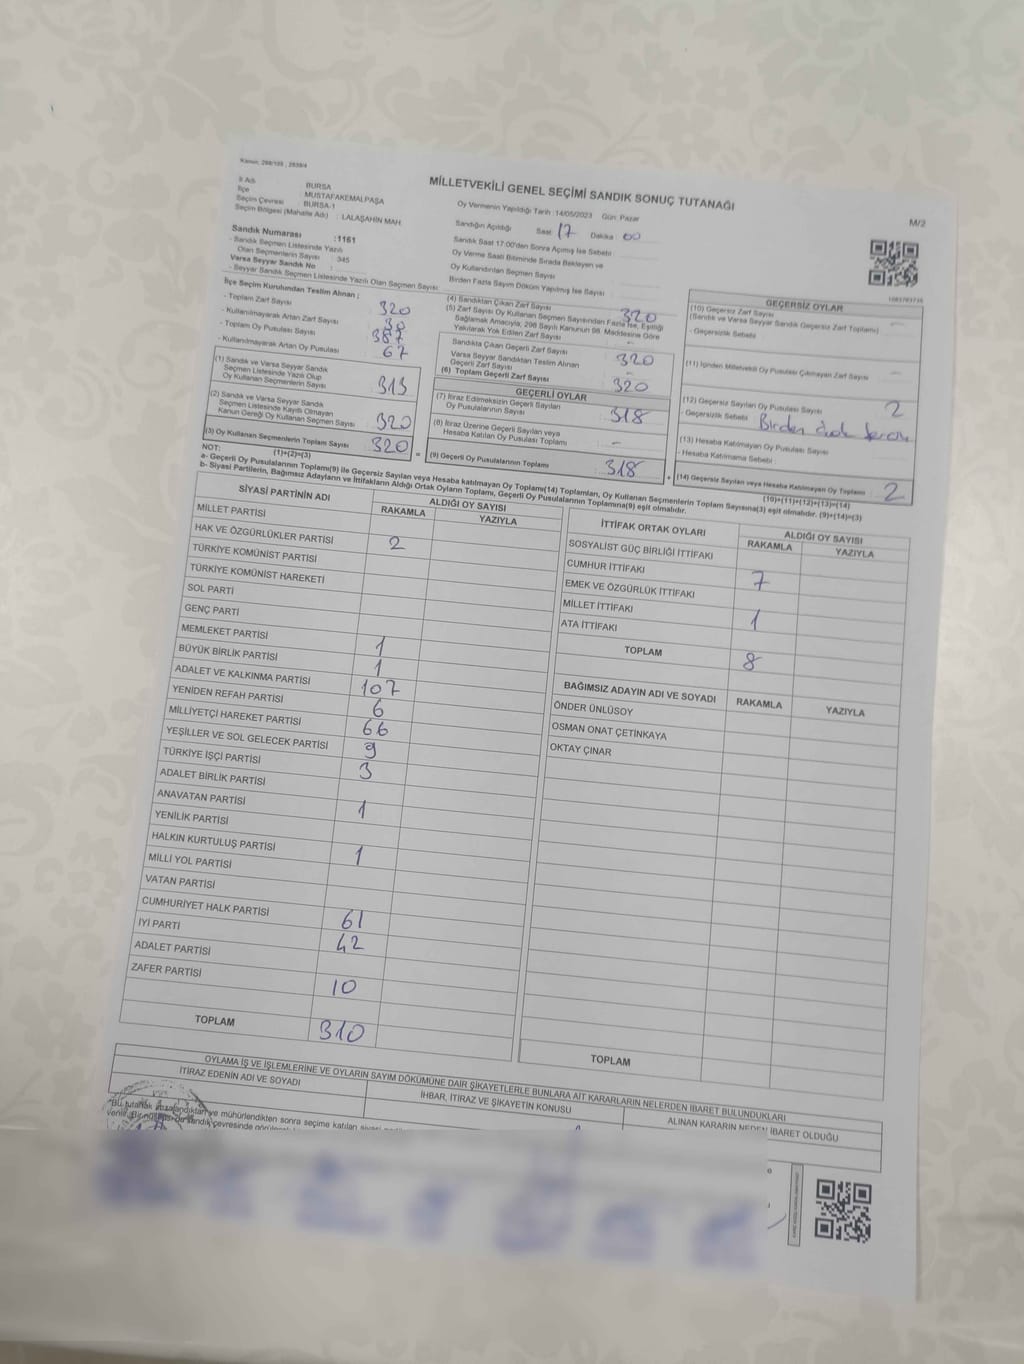 Kanun; 298/105 , 2839/4
MİLLETVEKİLİ GENEL SEÇİMİ SANDIK SONUÇ TUTANAĞI
M/2
İl Adı : BURSA
İlçe : MUSTAFAKEMALPAŞA
Seçim Çevresi : BURSA-1
Seçim Bölgesi (Mahalle Adı) : LALAŞAHİN MAH.
Sandık Numarası :1161
- Sandık Seçmen Listesinde Yazılı
Olan Seçmenlerin Sayısı : 345
Varsa Seyyar Sandık No :
- Seyyar Sandık Seçmen Listesinde Yazılı Olan Seçmen Sayısı:
Oy Vermenin Yapıldığı Tarih :14/05/2023 Gün: Pazar
Sandığın Açıldığı Saat 17 Dakika 00
Sandık Saat 17:00'den Sonra Açımış İse Sebebi :
Oy Verme Saati Bitiminde Sırada Bekleyen ve
Oy Kullandırılan Seçmen Sayısı :
Birden Fazla Sayım Döküm Yapılmış İse Sayısı :
İlçe Seçim Kurulundan Teslim Alınan ;
- Toplam Zarf Sayısı : 320
- Kullanılmayarak Artan Zarf Sayısı :
- Toplam Oy Pusulası Sayısı : 387
- Kullanılmayarak Artan Oy Pusulası : 67
(1) Sandık ve Varsa Seyyar Sandık
Seçmen Listesinde Yazılı Olup
Oy Kullanan Seçmenlerin Sayısı : 313
(2) Sandık ve Varsa Seyyar Sandık
Seçmen Listesinde Kayıtlı Olmayan
Kanun Gereği Oy Kullanan Seçmen Sayısı : 320
(3) Oy Kullanan Seçmenlerin Toplam Sayısı : 320
(1)+(2)=(3)
(4) Sandıktan Çıkan Zarf Sayısı : 320
(5) Zarf Sayısı Oy Kullanan Seçmen Sayısından Fazla İse, Eşitliği
Sağlamak Amacıyla, 298 Sayılı Kanunun 98. Maddesine Göre
Yakılarak Yok Edilen Zarf Sayısı : -
Sandıkta Çıkan Geçerli Zarf Sayısı : 320
Varsa Seyyar Sandıktan Teslim Alınan
Geçerli Zarf Sayısı : -
(6) Toplam Geçerli Zarf Sayısı : 320
GEÇERLİ OYLAR
(7) İtiraz Edilmeksizin Geçerli Sayılan
Oy Pusulalarının Sayısı : 318
(8) İtiraz Üzerine Geçerli Sayılan veya
Hesaba Katılan Oy Pusulası Toplamı : -
(9) Geçerli Oy Pusulalarının Toplamı : 318
GEÇERSİZ OYLAR
(10) Geçersiz Zarf Sayısı : -
(Sandık ve Varsa Seyyar Sandık Geçersiz Zarf Toplamı)
- Geçersizlik Sebebi :
(11) İçinden Milletvekili Oy Pusulası Çıkmayan Zarf Sayısı : -
(12) Geçersiz Sayılan Oy Pusulası Sayısı : 2
- Geçersizlik Sebebi : Birden
(13) Hesaba Katılmayan Oy Pusulası Sayısı :
- Hesaba Katılmama Sebebi :
(14) Geçersiz Sayılan veya Hesaba Katılmayan Oy Toplamı : 2
(10)+(11)+(12)+(13)=(14)
NOT:
a- Geçerli Oy Pusulalarının Toplamı(9) ile Geçersiz Sayılan veya Hesaba katılmayan Oy Toplamı(14) Toplamları, Oy Kullanan Seçmenlerin Toplam Sayısına(3) eşit olmalıdır. (9)+(14)=(3)
b- Siyasi Partilerin, Bağımsız Adayların ve İttifakların Aldığı Ortak Oyların Toplamı, Geçerli Oy Pusulalarının Toplamına(9) eşit olmalıdır.
SİYASİ PARTİNİN ADI
ALDIĞI OY SAYISI
RAKAMLA YAZIYLA
MİLLET PARTİSİ
HAK VE ÖZGÜRLÜKLER PARTİSİ 2
TÜRKİYE KOMÜNİST PARTİSİ
TÜRKİYE KOMÜNİST HAREKETİ
SOL PARTİ
GENÇ PARTİ
MEMLEKET PARTİSİ 1
BÜYÜK BİRLİK PARTİSİ 1
ADALET VE KALKINMA PARTİSİ 107
YENİDEN REFAH PARTİSİ 6
MİLLİYETÇİ HAREKET PARTİSİ 66
YEŞİLLER VE SOL GELECEK PARTİSİ 9
TÜRKİYE İŞÇİ PARTİSİ 3
ADALET BİRLİK PARTİSİ
ANAVATAN PARTİSİ 1
YENİLİK PARTİSİ
HALKIN KURTULUŞ PARTİSİ 1
MİLLİ YOL PARTİSİ
VATAN PARTİSİ
CUMHURİYET HALK PARTİSİ 61
İYİ PARTİ 42
ADALET PARTİSİ
ZAFER PARTİSİ 10
TOPLAM 310
İTTİFAK ORTAK OYLARI
ALDIĞI OY SAYISI
RAKAMLA YAZIYLA
SOSYALİST GÜÇ BİRLİĞİ İTTİFAKI
CUMHUR İTTİFAKI 7
EMEK VE ÖZGÜRLÜK İTTİFAKI
MİLLET İTTİFAKI 1
ATA İTTİFAKI
TOPLAM 8
BAĞIMSIZ ADAYIN ADI VE SOYADI RAKAMLA YAZIYLA
ÖNDER ÜNLÜSOY
OSMAN ONAT ÇETİNKAYA
OKTAY ÇINAR
TOPLAM
OYLAMA İŞ VE İŞLEMLERİNE VE OYLARIN SAYIM DÖKÜMÜNE DAİR ŞİKAYETLERLE BUNLARA AİT KARARLARIN NELERDEN İBARET BULUNDUKLARI
İTİRAZ EDENİN ADI VE SOYADI
İHBAR, İTİRAZ VE ŞİKAYETİN KONUSU
ALINAN KARARIN NEDEN İBARET OLDUĞU
"Bu tutanak imzalandıktan ve mühürlendikten sonra seçime katılan siyasi